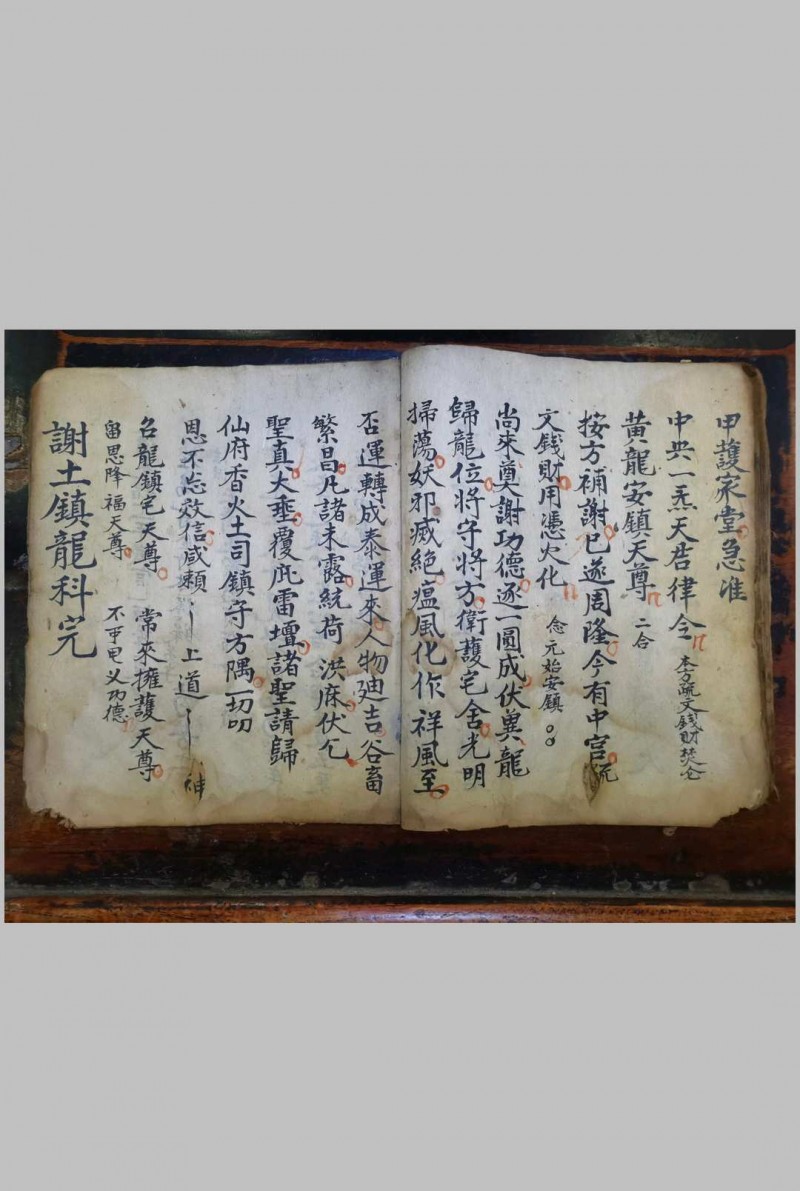 甲護家堂急准
中央一炁天君律令 本方疏文錢財焚化
黃龍安鎮天尊 二合
按方補謝已遂周隆今有中宮疏
文錢財用憑火化 念元始安鎮
尚來奠謝功德逐一圓成伏冀龍
歸龍位將守將方衛護宅舍光明
掃蕩妖邪滅絕瘟風化作祥風至
否運轉成泰運來人物廸吉谷畜
繁昌凡諸未露統荷洪庥伏乞
聖真大垂覆庇雷壇諸聖請歸
仙府香火土司鎮守方隅一切叨
恩不忘效信咸賴 上道 神
名龍鎮宅天尊 常來擁護天尊
留恩降福天尊 不可思义功德
謝土鎮龍科完